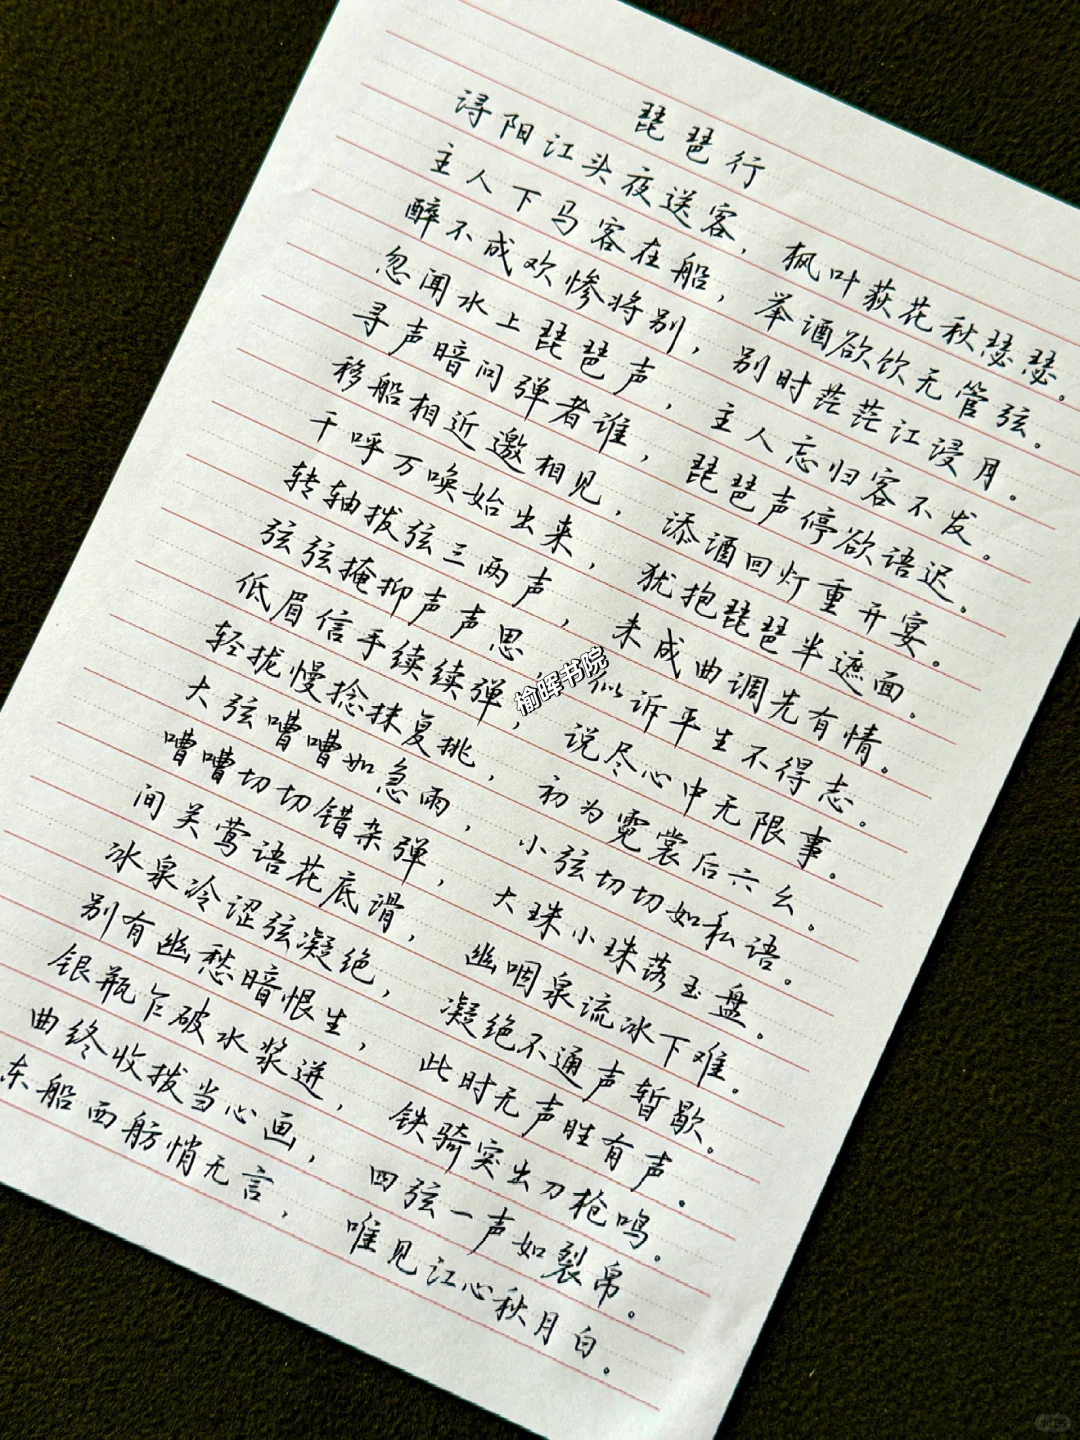 琵琶行
浔阳江头夜送客，枫叶荻花秋瑟瑟。
主人下马客在船，举酒欲饮无管弦。
醉不成欢惨将别，别时茫茫江浸月。
忽闻水上琵琶声，主人忘归客不发。
寻声暗问弹者谁，琵琶声停欲语迟。
移船相近邀相见，添酒回灯重开宴。
千呼万唤始出来，犹抱琵琶半遮面。
转轴拨弦三两声，未成曲调先有情。
弦弦掩抑声声思，似诉平生不得志。
低眉信手续续弹，说尽心中无限事。
轻拢慢捻抹复挑，初为霓裳后六幺。
大弦嘈嘈如急雨，小弦切切如私语。
嘈嘈切切错杂弹，大珠小珠落玉盘。
间关莺语花底滑，幽咽泉流冰下难。
冰泉冷涩弦凝绝，凝绝不通声暂歇。
别有幽愁暗恨生，此时无声胜有声。
银瓶乍破水浆迸，铁骑突出刀枪鸣。
曲终收拨当心画，四弦一声如裂帛。
东船西舫悄无言，唯见江心秋月白。
榆晖书院